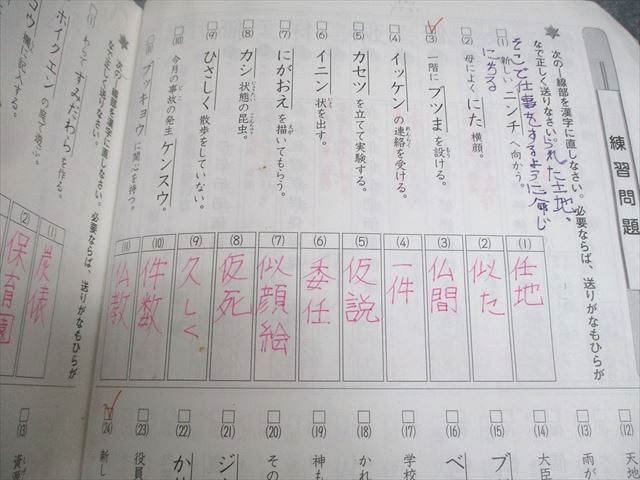 練習問題
次の―線部を漢字に直しなさい。必要ならば、送りがなもひらが
なで正しく送りなさい。
られた土地、
そこで仕事をするように命じ
にちる
(1) 新しいニンチへ向かう。
(2) 母によくにた横顔。
(3) 一階にブツまを設ける。
(4) イッケンの連絡を受ける。
(5) カセツを立てて実験する。
(6) イニン状を出す。
(7) にがおえを描いてもらう。
(8) カシ状態の昆虫。
(9) ひさしく散歩をしていない。
(10) 今月の事故の発生ケンスウ。
(11) ブッキョウに関心を持つ。
(1) 任地
(2) 似た
(3) 仏間
(4) 一件
(5) 仮説
(6) 委任
(7) 似顔絵
(8) 仮死
(9) 久しく
(10) 件数
(11) 仏教
次の―線部を漢字に直しなさい。必要ならば、送りがなもひらが
なで正しく送りなさい。
(1) わらですみだわらを作る。
ホイクエンの庭で遊ぶ。
コウ欄に記入する。
(1) 炭俵
(2) 保育園
(12) 天地
(13) 雨が
(14) 大臣
(15) ブ
(16) ベ
(17) 学校
(18) かれ
(19) 神も
(20) その
(21) ジ
(22) か
(23) 役員
(24) 新し
(13) 資源